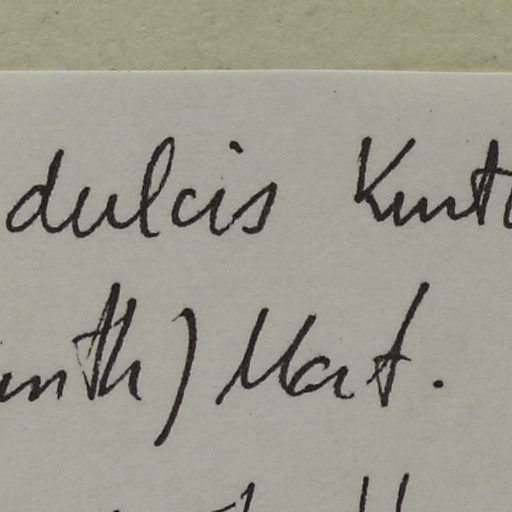 dulcis Kunt
unth) Mart.